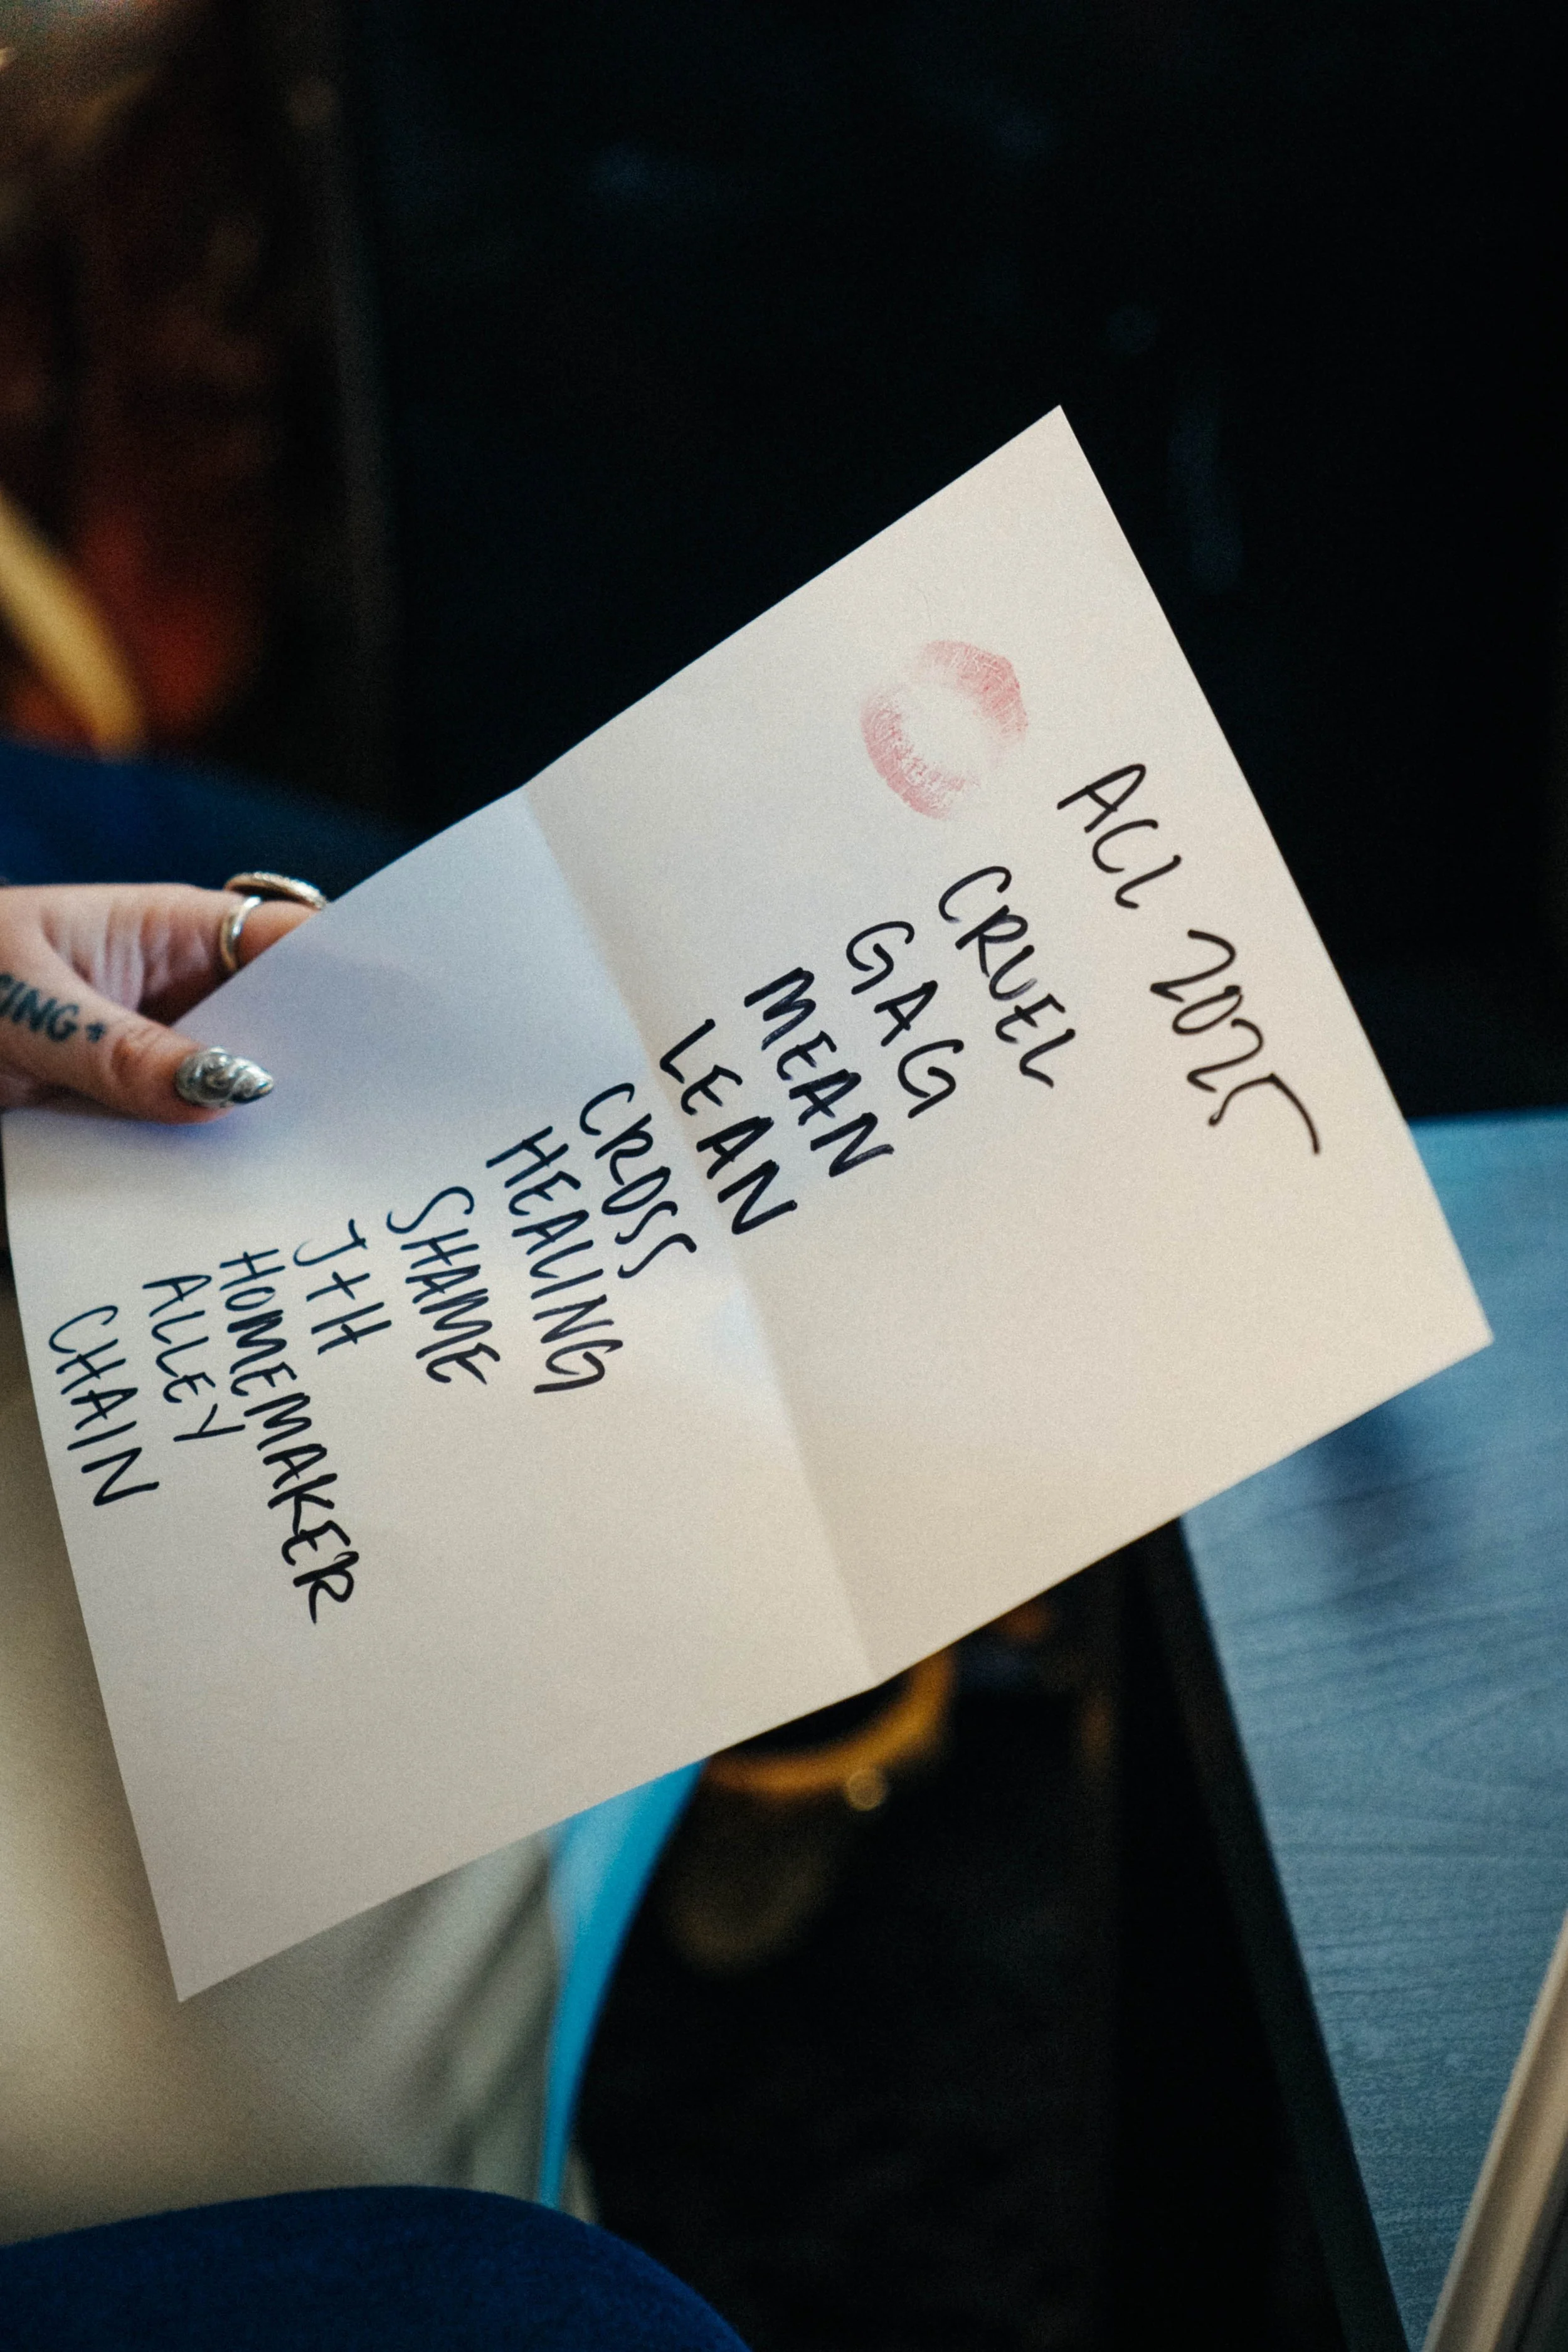 ACL 2025
CRUEL
GAG
MEAN
LEAN
CROSS
HEALING
SHAME
J+H
HOMEMAKER
ALLEY
CHAIN